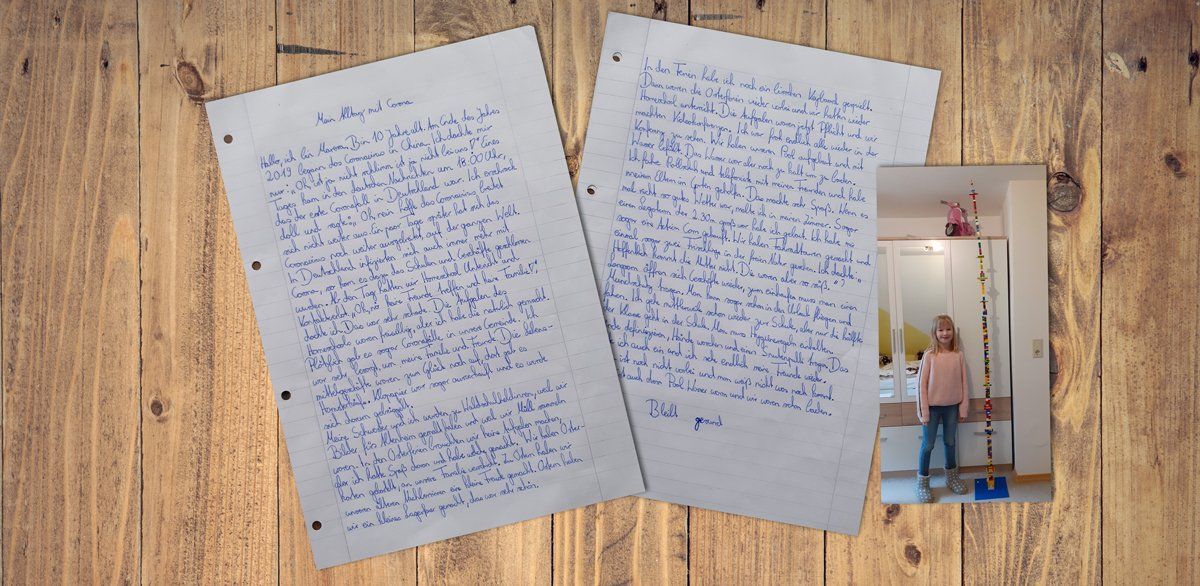 Mein Alltag mit Corona
Hallo, ich bin Marena. Bin 10 Jahre alt. Am Ende des Jahres
2019 begann das Coronavirus in China. Ich dachte mir
nur: „Oh, ist ja nicht schlimm, ist ja nicht bei uns!" Eines
Tages kam in den deutschen Nachrichten um 18.00 Uhr,
dass der erste Coronafall in Deutschland war. Ich erschrak
doll und sagte: „Oh nein, hoffe das Coronavirus breitet
sich nicht weiter aus. Ein paar Tage später hat sich das
Coronavirus noch weiter ausgebreitet auf der ganzen Welt.
In Deutschland infizierten sich auch immer mehr mit
Corona, so kam es dann, das Schulen und Geschäfte geschlossen
wurden. Ab den Tag hatten wir Homeschool Unterricht und
Kontaktverbot. „Oh, no, keine Freunde treffen und keine Familie!"
dachte ich. Das war sehr schade. Die Aufgaben des
Homeschools waren freiwillig, aber ich habe sie natürlich gemacht.
Plötzlich gab es sogar Coronafälle in unserer Gemeinde. Ich
war sehr besorgt, um meine Familie und Freunde. Die Lebens-
mittelgeschäfte waren zum Glück noch auf, dort gab es
Hamsterkäufe. Klopapier war sogar ausverkauft und es wurde
sich darum geprügelt.
Meine Schwester und ich wurden zu Heldinnen, weil wir
Bilder fürs Altenheim gemalt haben und weil wir Müll sammeln
waren. In den Osterferien brauchten wir keine Aufgaben machen,
aber ich hatte Spaß daran und habe welche gemacht. Wir haben Oster-
karten gebastelt, an unsere Familie verschickt. Zu Ostern haben wir
unseren älteren Nachbarn eine kleine Freude gemacht. Ostern haben
wir ein kleines Lagerfeuer gemacht, das war sehr schön.
In den Ferien habe ich noch ein bisschen Keyboard gespielt.
Dann waren die Osterferien wieder vorbei und wir hatten wieder
Homeschool unterricht. Die Aufgaben waren jetzt Pflicht und wir
machten Videokonferenzen. Ich war froh endlich alle wieder in der
Konferenz zu sehen. Wir haben unseren Pool aufgebaut und mit
Wasser befüllt. Das Wasser war aber noch zu kalt um zu baden.
Ich habe Rollerski und telefonierte mit meinen Freunden und habe
meinen Eltern im Garten geholfen. Das machte sehr Spaß. Wenn es
mal nicht so gutes Wetter war, malte ich in meinem Zimmer. Sogar
einen Legoturm der 2.30m groß war habe ich gebaut. Ich habe mir
sogar ein Action Cam gekauft. Wir haben Fahrradtouren gemacht und
einmal sogar zwei Frischlinge in der freien Natur gesehen. Ich dachte: „
Hoffentlich kommt die Mutter nicht. Die waren aber so süß."
Langsam öffnen sich Geschäfte wieder, zum einkaufen muss man einen
Mundschutz tragen. Man kann sogar schon in den Urlaub fliegen und
fahren. Ich gehe mittlerweile schon wieder zur Schule, aber nur die hälfte
Klasse geht in der Schule. Man muss Hygieneregeln einhalten
desinfizieren, Hände waschen und einen Snutenpulli tragen. Das
ich auch ein und ich sehe endlich meine Freunde wieder.
ist noch nicht vorbei und man weiß nicht was noch kommt.
auch dem Pool Wasser warm und wir waren schon baden.
Bleibt gesund